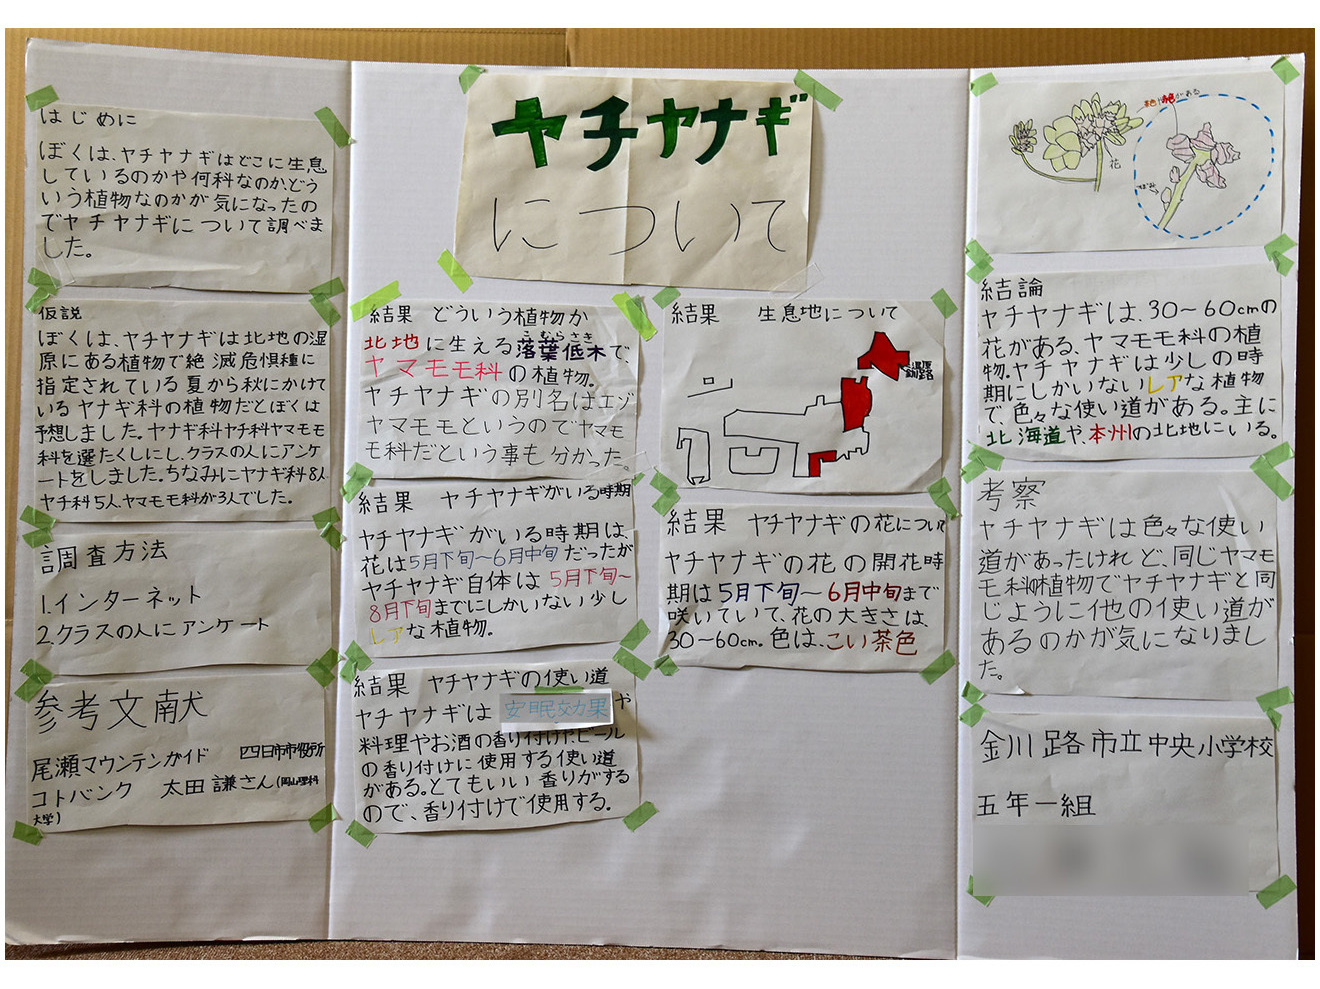 ヤチヤナギ
について
はじめに
ぼくは、ヤチヤナギはどこに生息
しているのかや何科なのか、どう
いう植物なのかが気になったの
でヤチヤナギについて調べま
した。
仮説
ぼくは、ヤチヤナギは北地の湿
原にある植物で絶滅危惧種に
指定されている夏から秋にかけて
いるヤナギ科の植物だとぼくは
予想しました。ヤナギ科ヤチ科ヤマモモ
科を選たくしにし、クラスの人にアンケ
ートをしました。ちなみにヤナギ科8人
ヤチ科5人、ヤマモモ科が3人でした。
調査方法
1.インターネット
2.クラスの人にアンケート
参考文献
尾瀬マウンテンガイド 四日市市役所
コトバンク 太田謙さん(岡山理科
大学)
結果 どういう植物か
こむらさき
北地に生える落葉低木で、
ヤマモモ科の植物。
ヤチヤナギの別名はエゾ
ヤマモモというのでヤマモ
モ科だという事も分かった。
結果 ヤチヤナギがいる時期
ヤチヤナギがいる時期は、
花は5月下旬〜6月中旬だったが
ヤチヤナギ自体は5月下旬〜
8月下旬までにしかいない少し
レアな植物。
結果 ヤチヤナギの使い道
ヤチヤナギは安眠効果や
料理やお酒の香り付けやビール
の香り付けに使用する使い道
がある。とてもいい香りがする
ので、香り付けで使用する。
結果 生息地について
湿原
釧路
結果 ヤチヤナギの花について
ヤチヤナギの花の開花時
期は5月下旬〜6月中旬まで
咲いていて、花の大きさは、
30〜60cm。色は、こい茶色
花
つぼみ
結論
ヤチヤナギは、30〜60cmの
花がある、ヤマモモ科の植
物。ヤチヤナギは少しの時
期にしかいないレアな植物
で、色々な使い道がある。主に
北海道や、本州の北地にいる。
考察
ヤチヤナギは色々な使い
道があったけれど、同じヤマモ
モ科の植物でヤチヤナギと同
じように他の使い道が
あるのかが気になりまし
た。
金川路市立中央小学校
五年一組